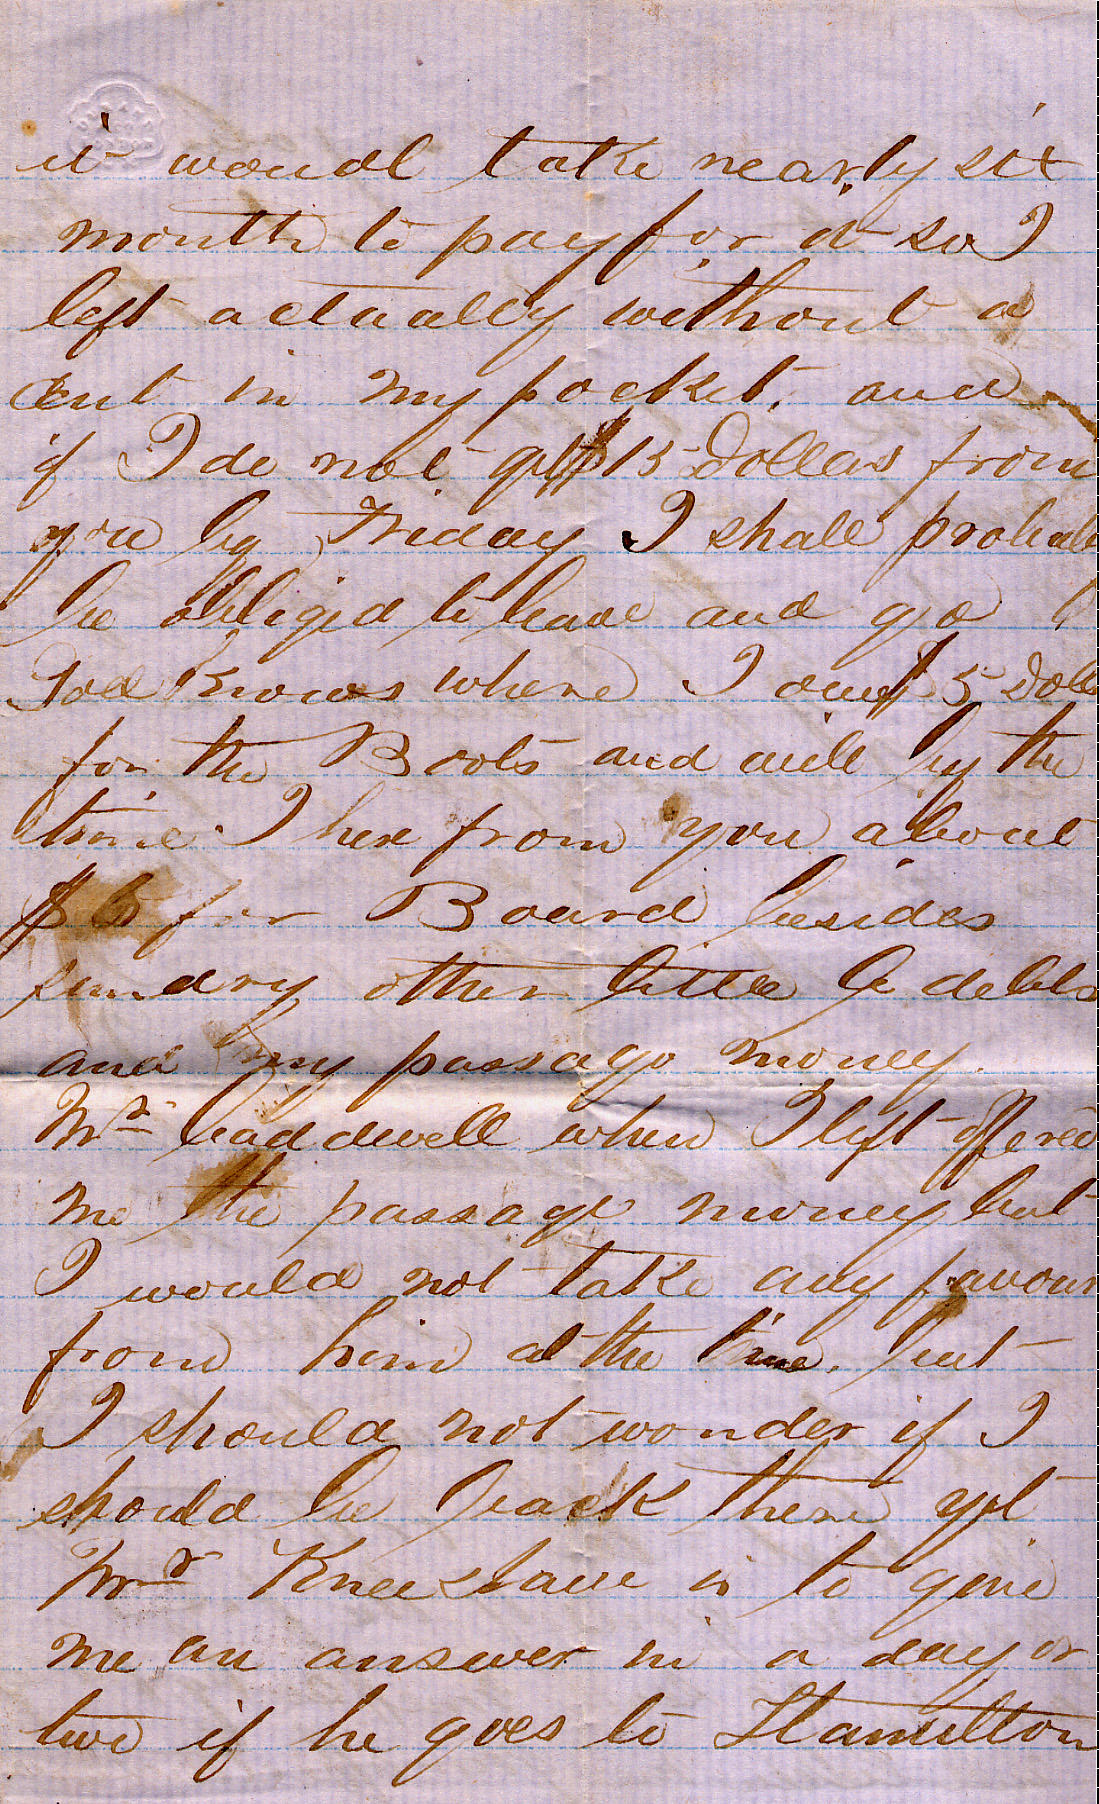 it woudl take nearly six
month to pay for it so I
left actually without a
cent in my pocket. and
if I do not get $15 Dollars from
you by Friday I shall probabl
be obliged to leave and go
God Knows where I owe $5 Doll
for the Boots and will by the
time I here from you about
$6 for Board besides
sundry other little debts
and my passage money.
Mr Caddwell when I left offered
me the passage money but
I would not take any favour
from him at the time. but
I should not wonder if I
should be back there yet
Mr Kneeshaw is to give
me an answer in a day or
two if he goes to Hamilton